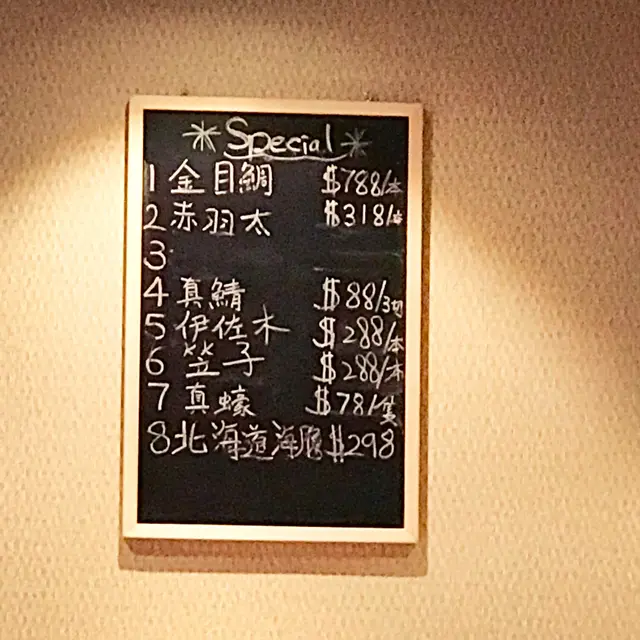 *Special*
1 金目鯛 $788/本
2 赤羽太 $318/本
3
4 真鯖 $88/3切
5 伊佐木 $288/本
6 笠子 $288/本
7 真蠔 $78/隻
8 北海道海胆 $298